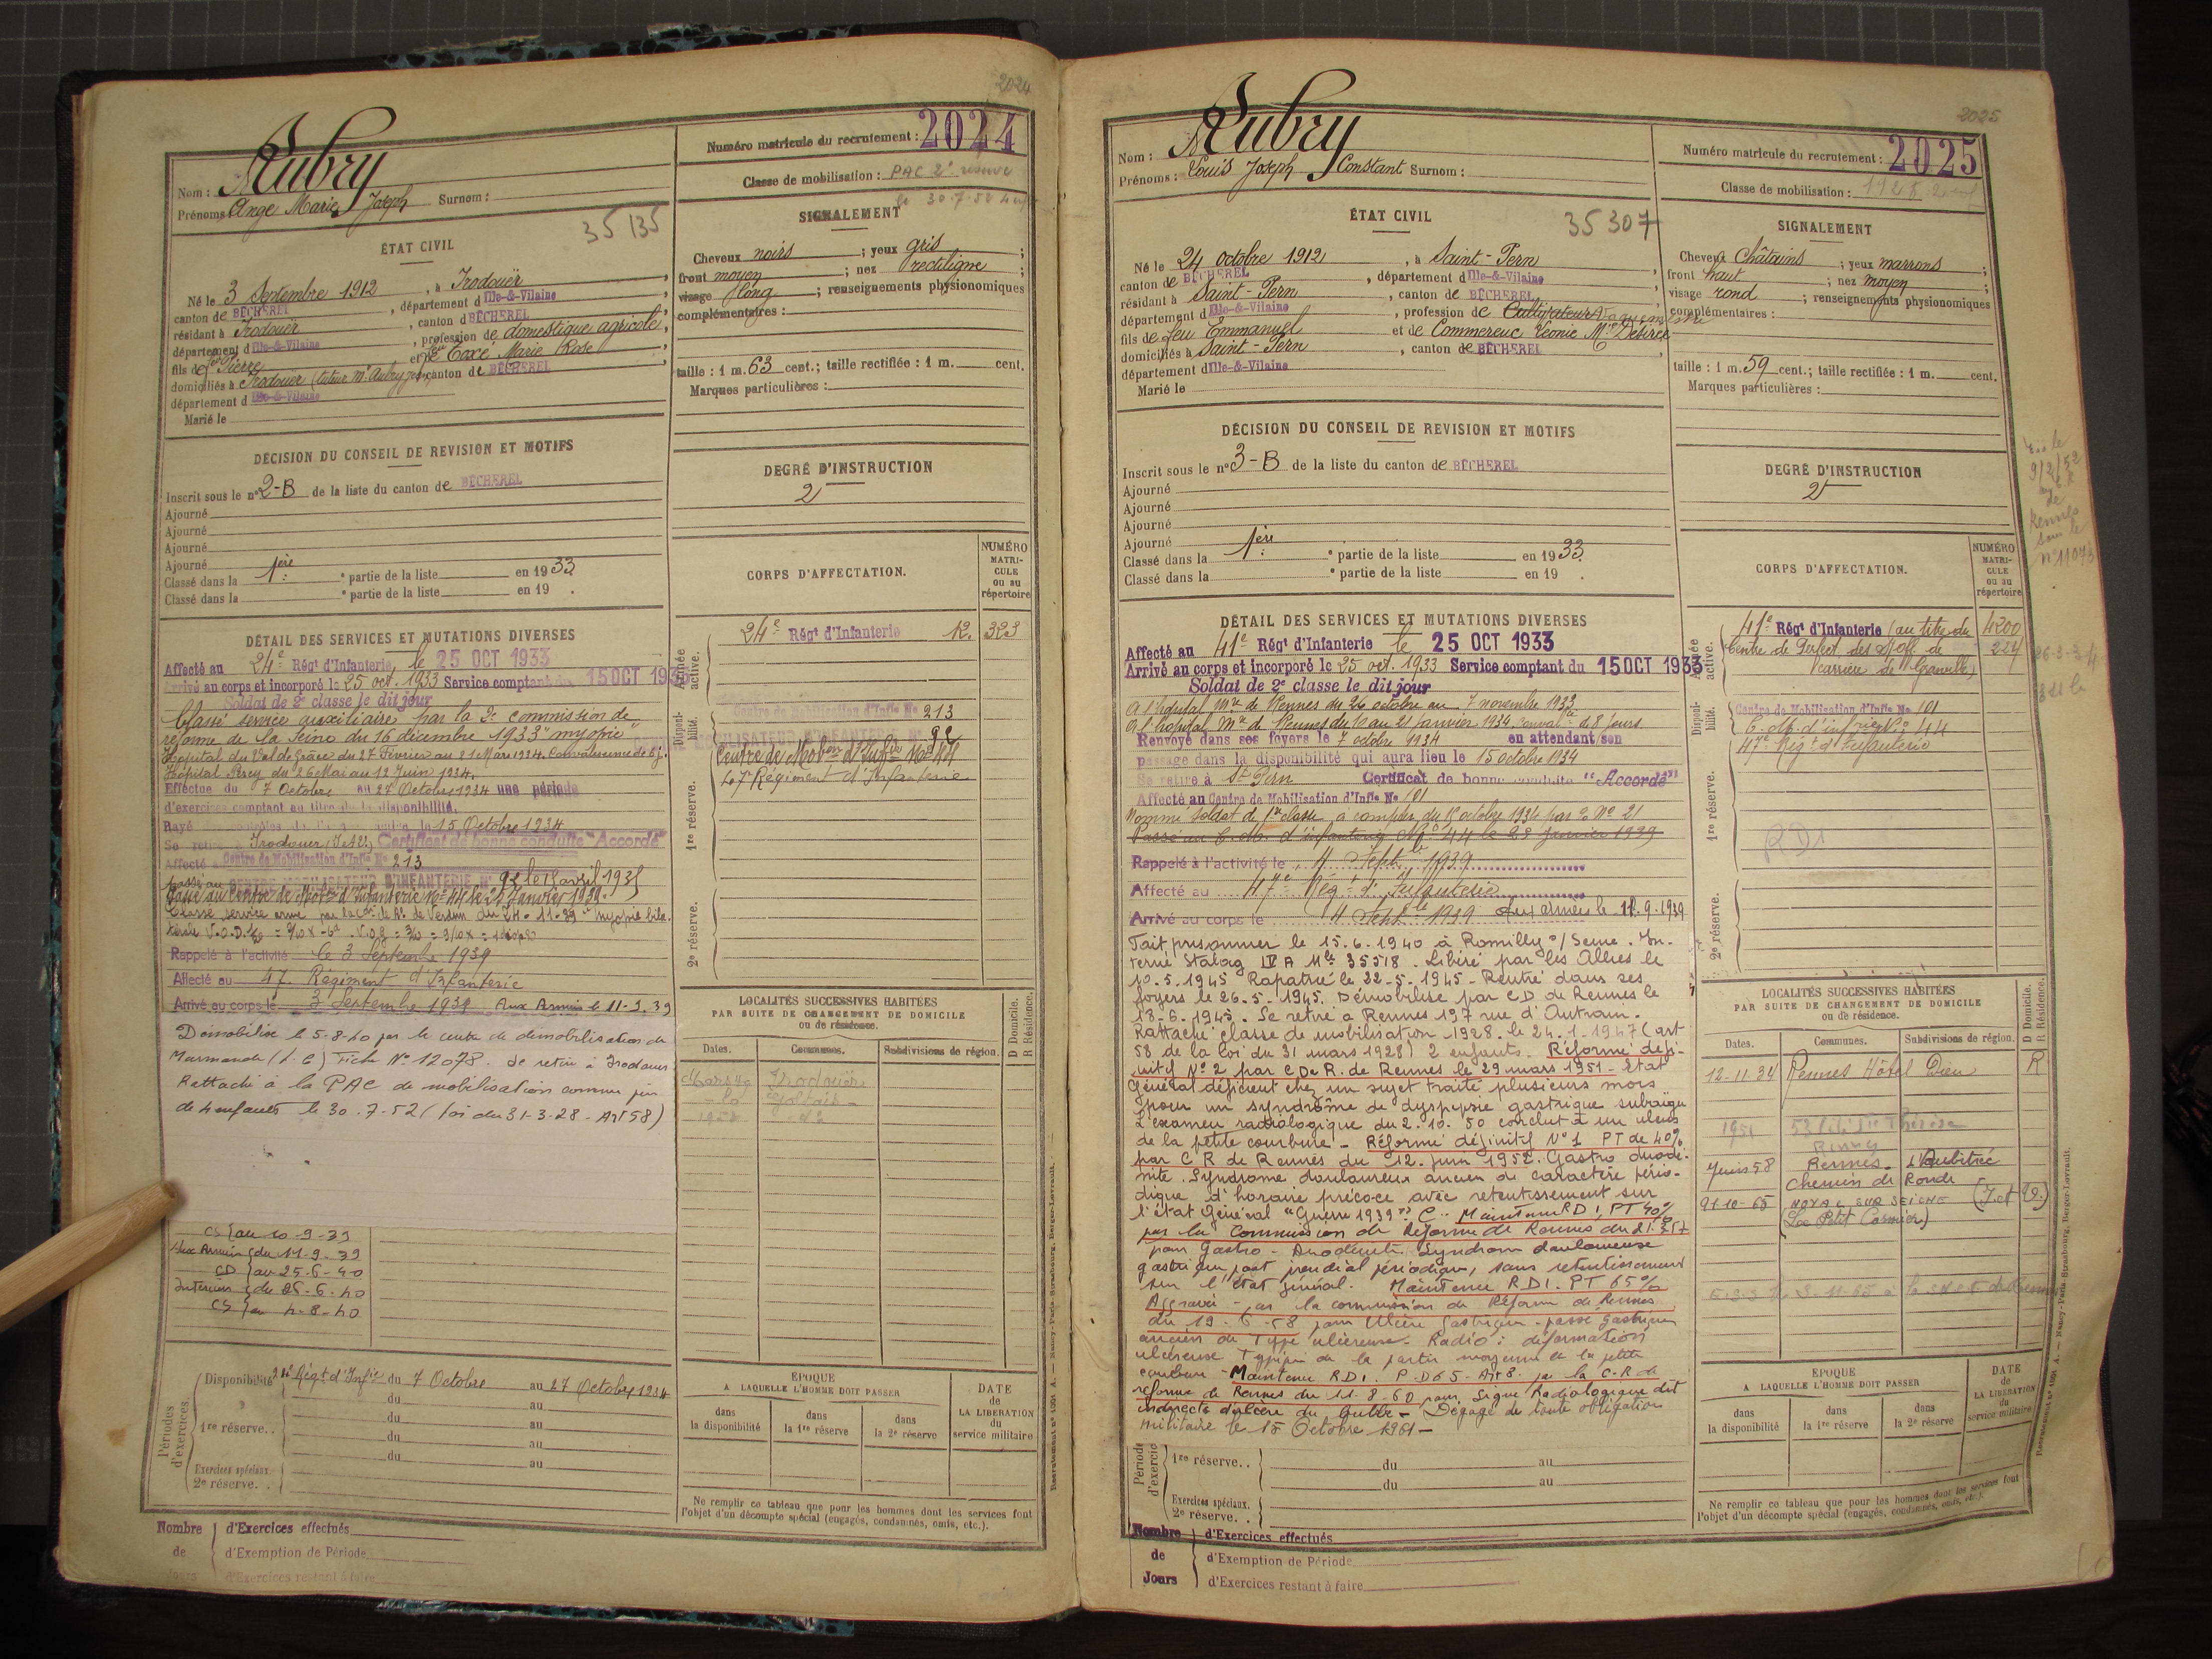 2024
Numéro matricule du recrutement : 2024
Nom : Aubry
Classe de mobilisation : PAC 2e réserve
le 30.7.52 4 enf
Prénoms : Ange Marie Joseph Surnom :
35135
ÉTAT CIVIL
Né le 3 Septembre 1912, à Irodouër,
canton de BÉCHEREL, département d Ille-&-Vilaine,
résidant à Irodouër, canton d BÉCHEREL
département d Ille-&-Vilaine, profession de domestique agricole,
fils de feu Pierre et de feu Toxé Marie Rose
domiciliés à Irodouër (tuteur Mr Aubry), canton de BÉCHEREL
département d Ille-&-Vilaine
Marié le
SIGNALEMENT
Cheveux noirs ; yeux gris ;
front moyen ; nez rectiligne ;
visage long ; renseignements physionomiques
complémentaires :
taille : 1 m. 63 cent.; taille rectifiée : 1 m. cent.
Marques particulières :
DÉCISION DU CONSEIL DE REVISION ET MOTIFS
Inscrit sous le n° 2-B de la liste du canton de BÉCHEREL
Ajourné
Ajourné
Ajourné
Ajourné
Classé dans la 1ère partie de la liste en 1933
Classé dans la partie de la liste en 19 .
DEGRÉ D'INSTRUCTION
2
CORPS D'AFFECTATION.
NUMÉRO MATRICULE ou au répertoire
Armée active.
24e Régt d'Infanterie 12. 323
Disponibilité.
Centre de Mobilisation d'Infie No 213
MOBILISATEUR D'INFANTERIE N° 92
Centre de Mobon d'Infie No 44
47e Régiment d'Infanterie
1re réserve.
2e réserve.
DÉTAIL DES SERVICES ET MUTATIONS DIVERSES
Affecté au 24e Régt d'Infanterie, le 25 OCT 1933
Arrivé au corps et incorporé le 25 oct. 1933 Service comptant du 15 OCT 1933
Soldat de 2e classe le dit jour
Classé service auxiliaire par la 2e commission de
réforme de la Seine du 16 décembre 1933 "myopie"
Hôpital du Val de Grâce du 27 Février au 21 Mars 1934. Convalescence de 6 j.
Hôpital Percy du 26 Mai au 12 Juin 1934.
Effectue du 7 Octobre au 27 Octobre 1934 une période
d'exercices comptant au titre de la disponibilité.
Rayé le 15 Octobre 1934
Se retire à Irodouer (I.&V.) Certificat de bonne conduite "Accordé"
Affecté au Centre de Mobilisation d'Infie No 213
Passé au CENTRE MOBILISATEUR D'INFANTERIE N° 92 le 15 avril 1935
Passé au Centre de Mobon d'Infanterie No 44 le 28 Janvier 1939.
Classé service armé par la Con de Rme de Verdun du 24-11-39 "myopie bila-
Rappelé à l'activité le 3 Septembre 1939
Affecté au 47. Régiment d'Infanterie
Arrivé au corps le 3 Septembre 1939 Aux Armées le 11-9.39
Démobilisé le 5-8-40 par le centre de démobilisation de
Marmande (L. G) Fiche No 12078. Se retire à Irodouer
Rattaché à la PAC de mobilisation comme père
de 4 enfants le 30.7.52 (loi du 31-3-28 - Art 58)
CS au 10-9-39
Aux Armées du 11-9-39
CD au 25-6-40
Intérieur du 26-6-40
CS au 4-8-40
LOCALITÉS SUCCESSIVES HABITÉES
PAR SUITE DE CHANGEMENT DE DOMICILE
ou de résidence.
D Domicile. R Résidence.
Dates. Communes. Subdivisions de région.
Irodouër
Périodes d'exercices.
Disponibilité 24e Régt d'Infie du 7 Octobre au 27 Octobre 1934
du au
1re réserve. . du au
du au
du au
Exercices spéciaux.
2e réserve. .
ÉPOQUE
A LAQUELLE L'HOMME DOIT PASSER
dans la disponibilité
dans la 1re réserve
dans la 2e réserve
DATE de LA LIBÉRATION du service militaire
Ne remplir ce tableau que pour les hommes dont les services font
l'objet d'un décompte spécial (engagés, condamnés, omis, etc.).
Nombre de Jours
d'Exercices effectués
d'Exemption de Période
d'Exercices restant à faire
2025
Numéro matricule du recrutement : 2025
Nom : Aubry
Classe de mobilisation : 1928 2 enf
Prénoms : Louis Joseph Constant Surnom :
35307
ÉTAT CIVIL
Né le 24 octobre 1912, à Saint-Pern,
canton de BÉCHEREL, département d Ille-&-Vilaine
résidant à Saint-Pern, canton de BÉCHEREL,
département d Ille-&-Vilaine, profession de Cultivateur
fils de feu Emmanuel et de Commereuc Léonie Mie Désirée
domiciliés à Saint-Pern, canton de BÉCHEREL
département d Ille-&-Vilaine
Marié le
SIGNALEMENT
Cheveux Châtains ; yeux marrons ;
front haut ; nez moyen ;
visage rond ; renseignements physionomiques
complémentaires :
taille : 1 m. 59 cent.; taille rectifiée : 1 m. cent.
Marques particulières :
DÉCISION DU CONSEIL DE REVISION ET MOTIFS
Inscrit sous le n° 3-B de la liste du canton de BÉCHEREL
Ajourné
Ajourné
Ajourné
Ajourné
Classé dans la 1ère partie de la liste en 1933
Classé dans la partie de la liste en 19 .
DEGRÉ D'INSTRUCTION
2
le
9/2/52
de
Rennes
sous le
n° 11073
CORPS D'AFFECTATION.
NUMÉRO MATRICULE ou au répertoire
Armée active.
41e Régt d'Infanterie (au titre du 4200
Centre de Perfect. des S/Off. de 224
carrière de Granville)
Disponibilité.
Centre de Mobilisation d'Infie No 101
C. M. d'infrie No 44
47e Régt d'Infanterie
1re réserve.
RD1
2e réserve.
DÉTAIL DES SERVICES ET MUTATIONS DIVERSES
Affecté au 41e Régt d'Infanterie le 25 OCT 1933
Arrivé au corps et incorporé le 25 oct. 1933 Service comptant du 15 OCT 1933
Soldat de 2e classe le dit jour
A l'hôpital Mre de Rennes du 26 octobre au 7 novembre 1933
A l'hôpital Mre de Rennes du 10 au 21 janvier 1934. Convalce de 8 jours.
Renvoyé dans ses foyers le 7 octobre 1934 en attendant son
passage dans la disponibilité qui aura lieu le 15 octobre 1934
Se retire à St Pern Certificat de bonne conduite "Accordé"
Affecté au Centre de Mobilisation d'Infie No 101
Nommé Soldat de 1re classe à compter du 15 octobre 1934 par O. No 21
Passé au C. M. d'infanterie No 44 le 28 janvier 1939
Rappelé à l'activité le 4 Septbre 1939
Affecté au 47e Régt d'Infanterie
Arrivé au corps le 4 Septbre 1939 Aux armées le 11-9-1939
Fait prisonnier le 15.6.1940 à Romilly s/Seine. In-
terné Stalag IV A Mle 35518. Libéré par les Alliés le
10.5.1945 Rapatrié le 22-5-1945 - Rentré dans ses
foyers le 26.5-1945. Démobilisé par CD de Rennes le
18-6.1945. Se retire à Rennes 197 rue d'Antrain.
Rattaché classe de mobilisation 1928. le 24.1.1947 (art
58 de la loi du 31 mars 1928) 2 enfants. Réformé défi-
nitif No 2 par C De R. de Rennes le 29 mars 1951 - Etat
Général déficient chez un sujet traité plusieurs mois
pour un syndrôme de dyspepsie gastrique subraigu
L'examen radiologique du 2.10.50 conclut à un ulcus
de la petite courbure - Réformé définitif No 1 PT de 40%
par C R de Rennes du 12 juin 1952. Gastro duodé-
nite. Syndrome douloureux ancien de caractère pério-
dique d'horaire précoce avec retentissement sur
l'état Général "Guerre 1939" C. Maintenu RD1, PT 40%
par la Commission de Réforme de Rennes du 21.3.57
pour Gastro-Duodénite Syndrome douloureux
gastrique post prandial périodique, sans retentissement
sur l'état général. Maintenu RD1. PT 65%
Aggravé - par la commission de Réforme de Rennes
du 19-6-58 pour Ulcère Gastrique - passé gastrique
ancien de Type ulcéreux. Radio : déformation
ulcéreuse Typique de la partie moyenne de la petite
courbure - Maintenu RD1. P.D 65 - Art 8. par la C.R de
réforme de Rennes du 11-8-60 pour Signe Radiologique dit
indirects d'ulcère du bulbe - Dégagé de toute obligation
militaire le 15 Octobre 1961 -
LOCALITÉS SUCCESSIVES HABITÉES
PAR SUITE DE CHANGEMENT DE DOMICILE
ou de résidence.
D Domicile. R Résidence.
Dates. Communes. Subdivisions de région.
12-11-34 Rennes Hôtel Dieu R
1951 Thérèse
Rennes
Juin 58 Rennes. L'Aubitrée
Chemin de Ronde
21-10-65 NOYAL SUR SEICHE (I. et V.)
(Le Petit Cormier)
Période d'exercice
1re réserve. . du au
du au
Exercices spéciaux.
2e réserve. .
ÉPOQUE
A LAQUELLE L'HOMME DOIT PASSER
dans la disponibilité
dans la 1re réserve
dans la 2e réserve
DATE de LA LIBÉRATION du service militaire
Ne remplir ce tableau que pour les hommes dont les services font
l'objet d'un décompte spécial (engagés, condamnés, omis, etc.).
Nombre de Jours
d'Exercices effectués
d'Exemption de Période
d'Exercices restant à faire